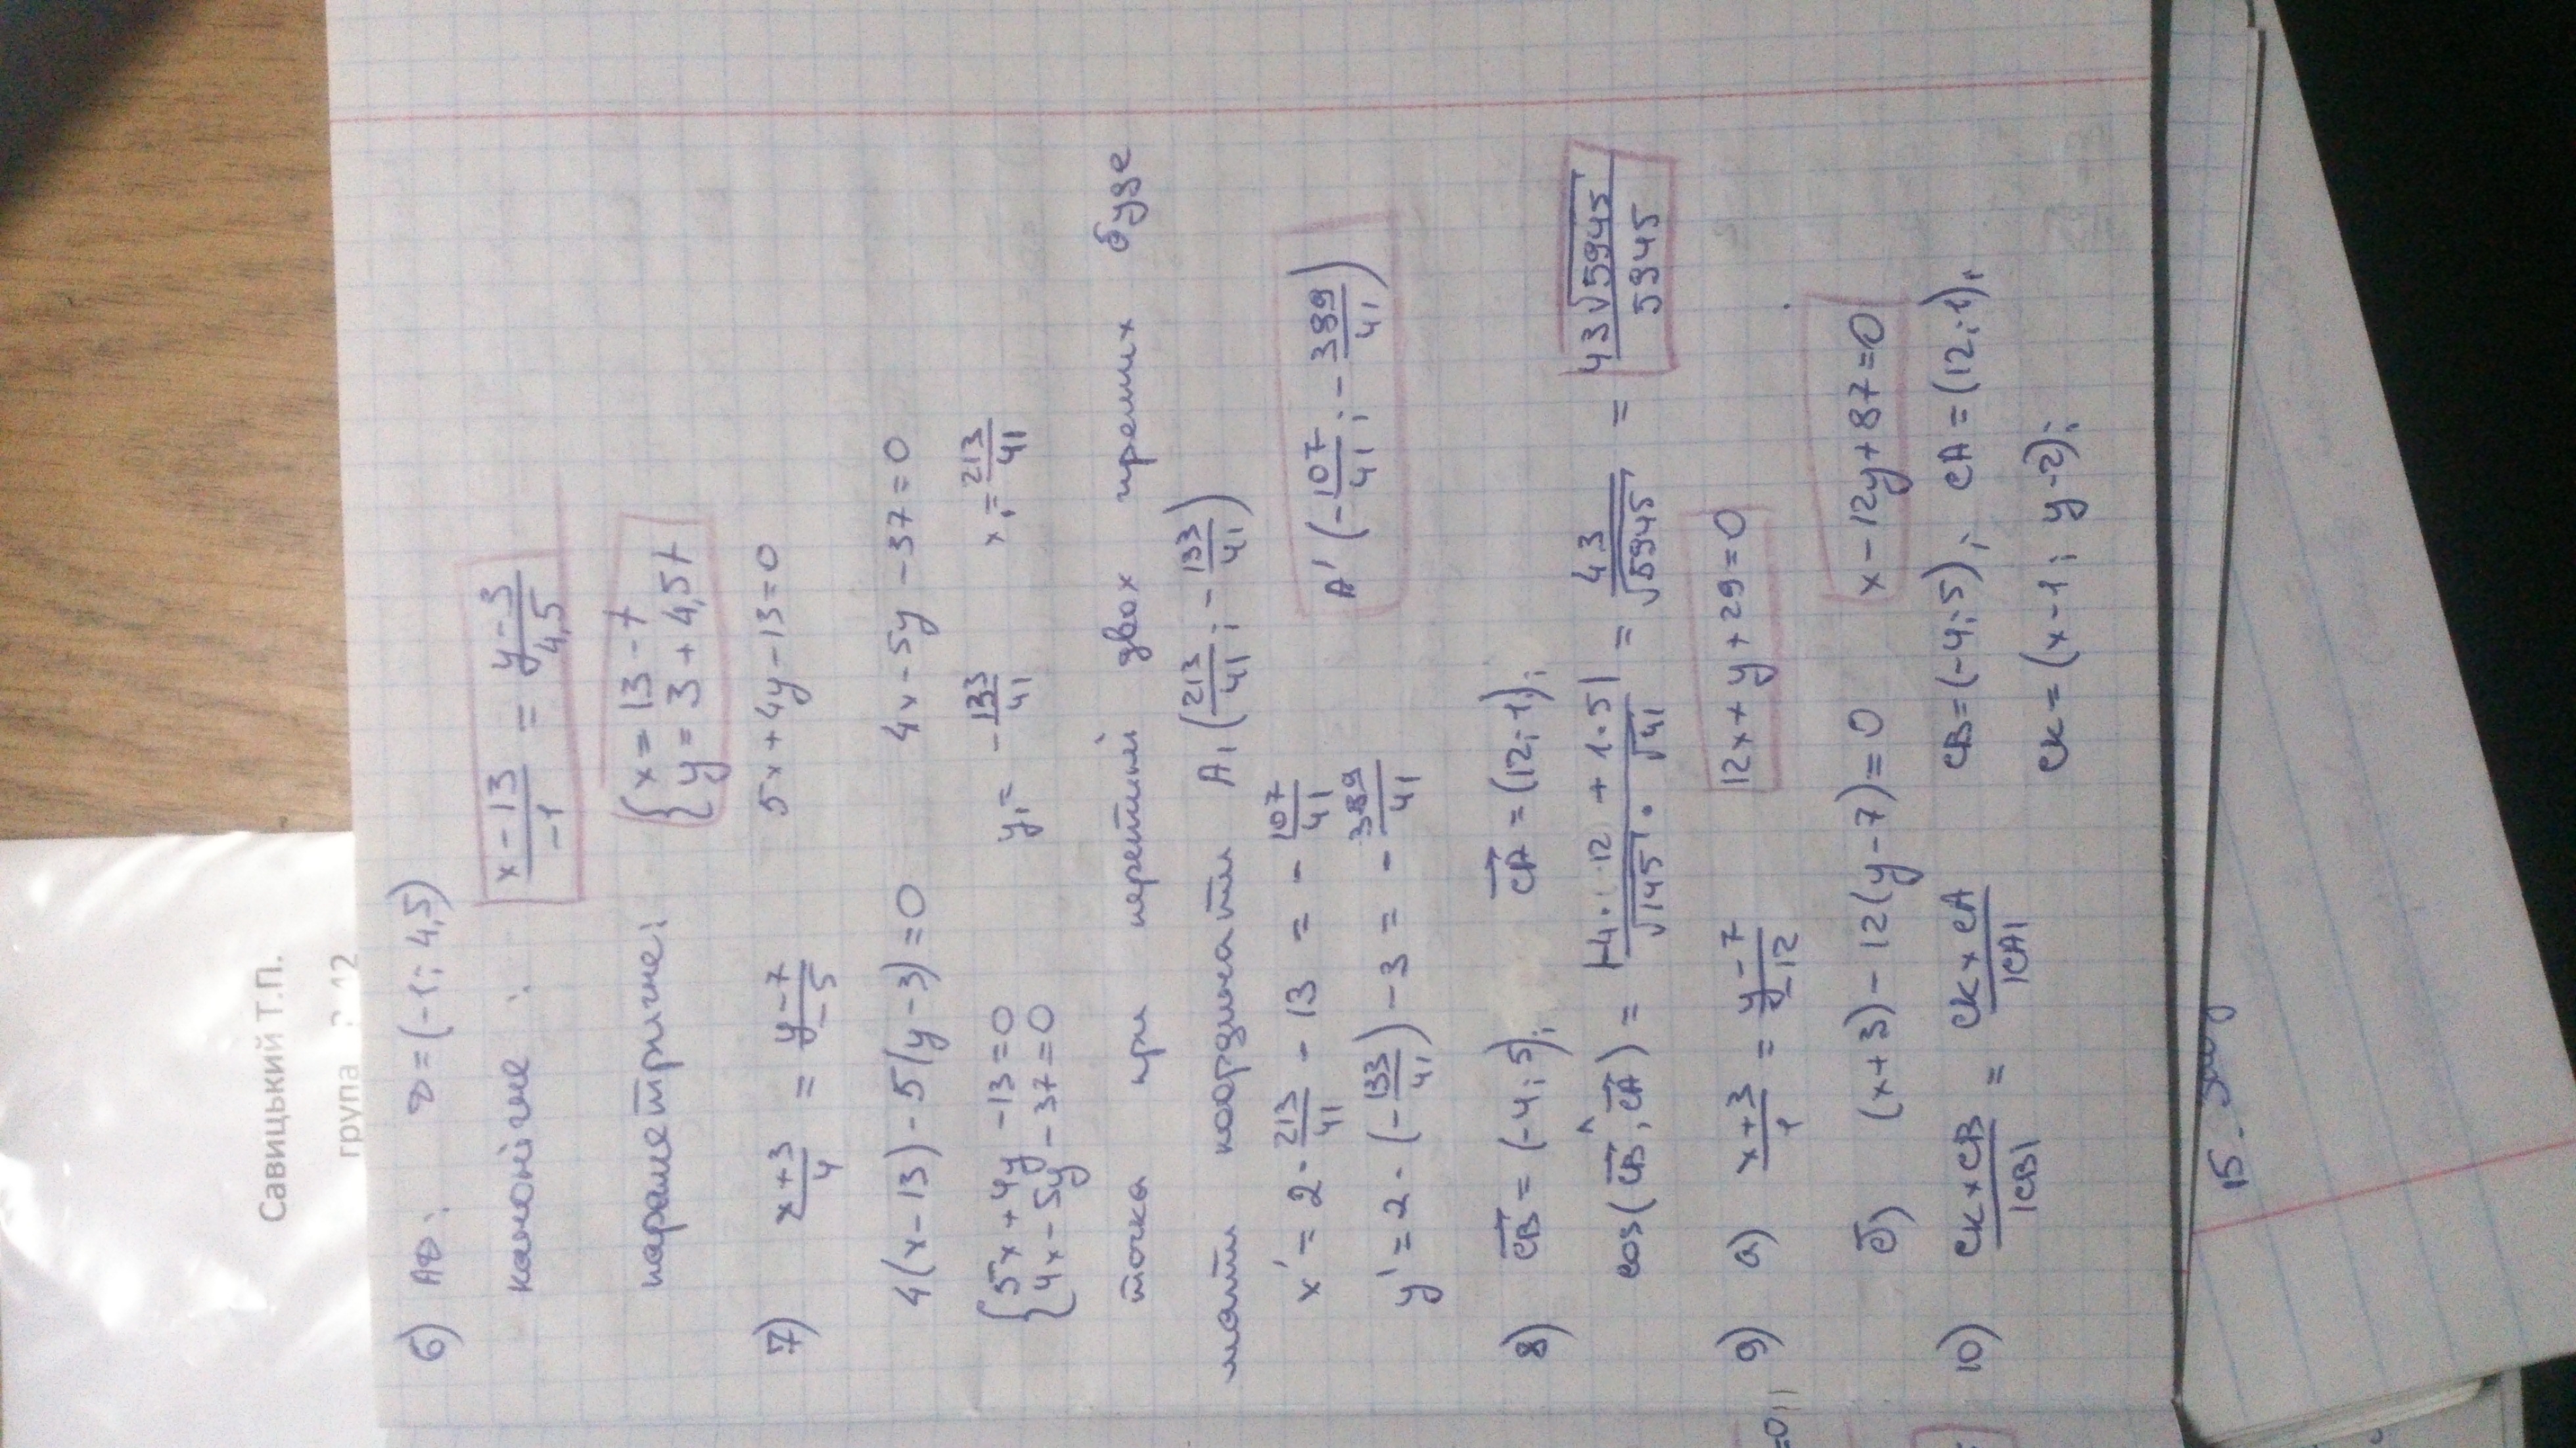 Савицький Т.П.
група
6) AD: D=(-1; 4,5)
канонічне : x-13/-1 = y-3/4,5
параметричне: { x = 13 - t
y = 3 + 4,5t
7) x+3/4 = y-7/-5 5x+4y-13=0
4(x-13)-5(y-3)=0 4x-5y-37=0
{ 5x+4y-13=0 y₁= -133/41 x₁= 213/41
4x-5y-37=0
точка при перетині двох прямих буде
мати координати A₁(213/41; -133/41)
x' = 2·213/41 - 13 = -107/41 A'(-107/41; -389/41)
y' = 2·(-133/41) - 3 = -389/41
8) CB = (-4; 5); CA = (12; 1);
cos(CB,^CA) = |-4·12 + 1·5|/√145·√41 = 43/√5945 = 43√5945/5945
9) а) x+3/1 = y-7/-12 12x+y+29=0
=0
б) (x+3)-12(y-7)=0 x-12y+87=0
10) CK×CB/|CB| = CK×CA/|CA| CB=(-4;5); CA=(12;1);
CK=(x-1; y-2);
15.